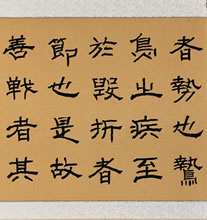 者勢也鷙
鳥之疾至
於毀折者
節也是故
善戦者其